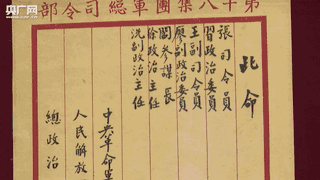 央广网
第十八集團軍總司令部
此命
張司令員
習政治委員
王副司令員
廖副政治委員
閻參謀長
徐政治主任
冼副政治主任
中共革命
人民解放
總政治